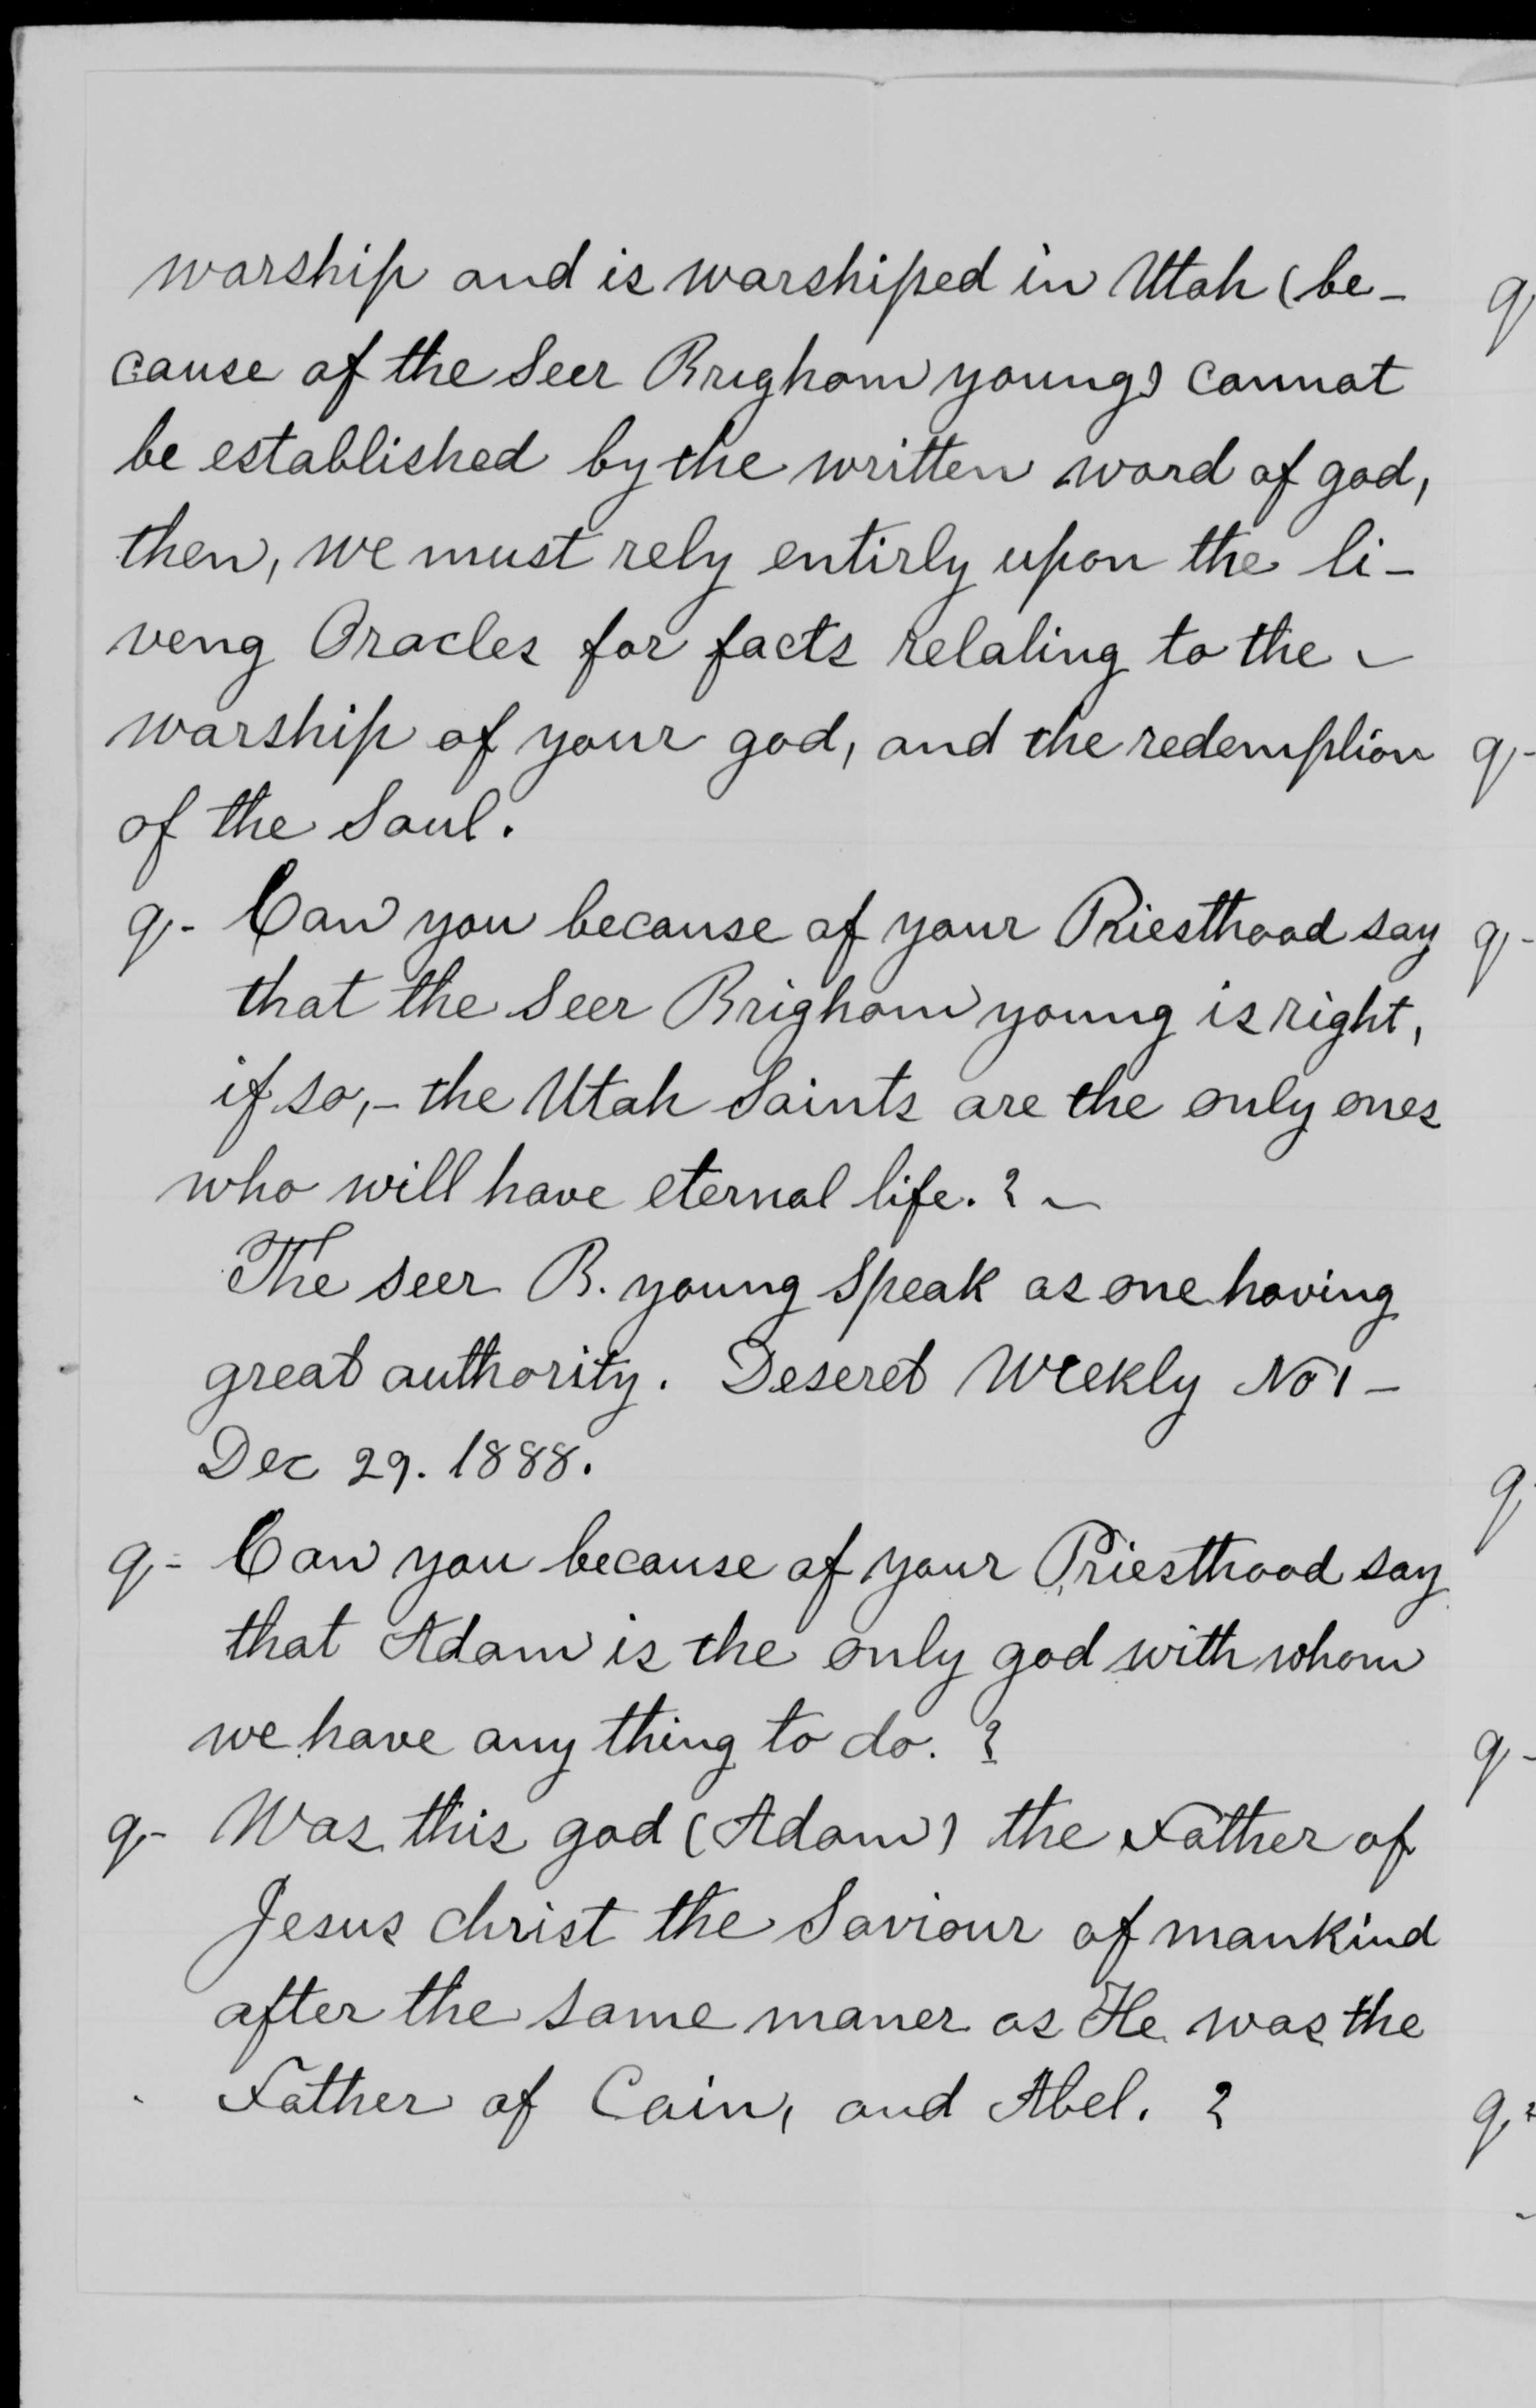 worship and is worshiped in Utah (be-
cause of the Seer Brigham young) cannot
be established by the written word of god,
then, we must rely entirly upon the li-
veng Oracles for facts relating to the
worship of your god, and the redemption
of the Soul.
q- Can you because of your Priesthood say
that the Seer Brigham young is right,
if so,- the Utah Saints are the only ones
who will have eternal life. ?
The seer B. young speak as one having
great authority. Deseret Weekly No 1-
Dec 29. 1888.
q- Can you because of your Priesthood say
that Adam is the only god with whom
we have any thing to do. ?
q- Was this god (Adam) the Father of
Jesus christ the Saviour of mankind
after the same maner as He was the
Father of Cain, and Abel. ?
q
q-
q-
q
q-
q